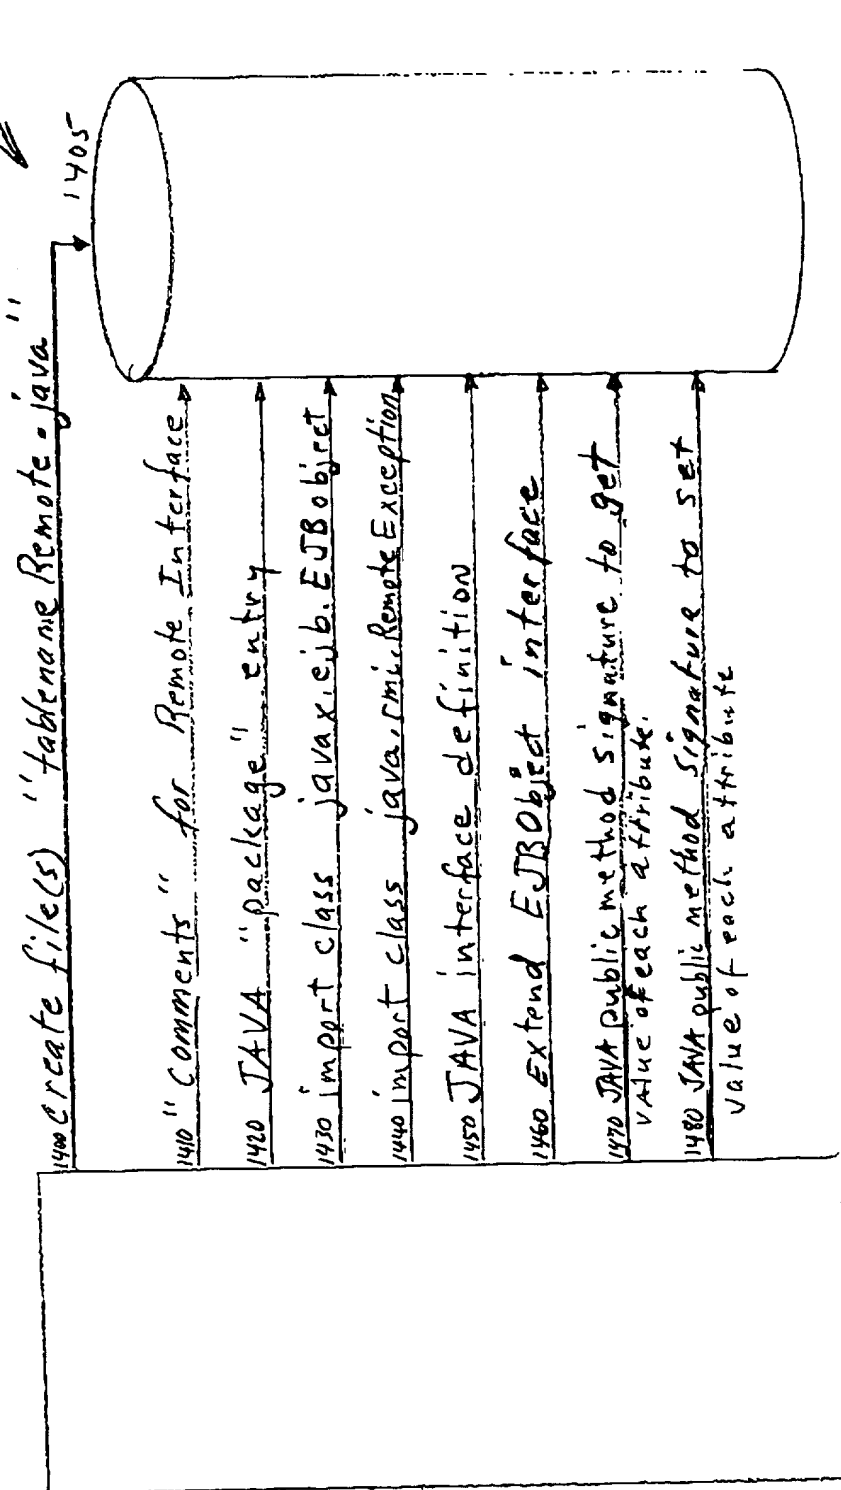 1400 Create file(s) "tablenameRemote.java"
1405
1410 "Comments" for Remote Interface
1420 JAVA "package" entry
1430 import class javax.ejb.EJBobject
1440 import class java.rmi.RemoteException
1450 JAVA interface definition
1460 Extend EJBObject interface
1470 JAVA public method signature to get
value of each attribute.
1480 JAVA public method signature to set
value of each attribute